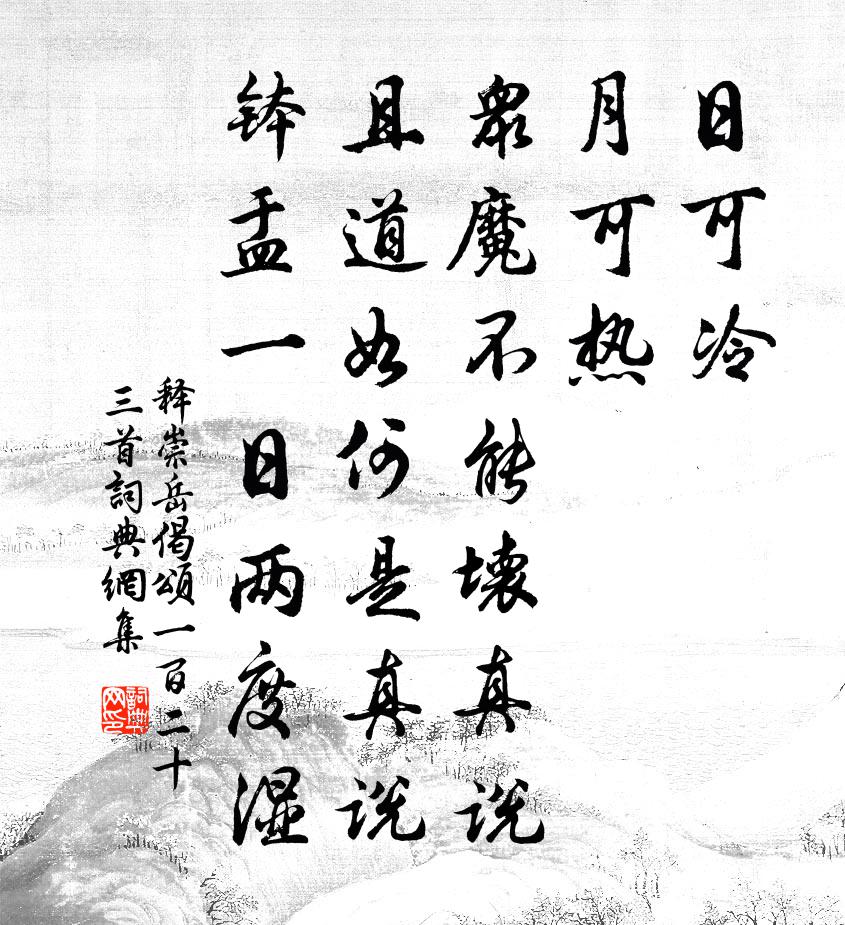 日可冷
月可热
眾魔不能壞真说
且道如何是真说
钵盂一日两度湿
释崇岳偈頌一百二十
三首詞典網集
詞典
网印